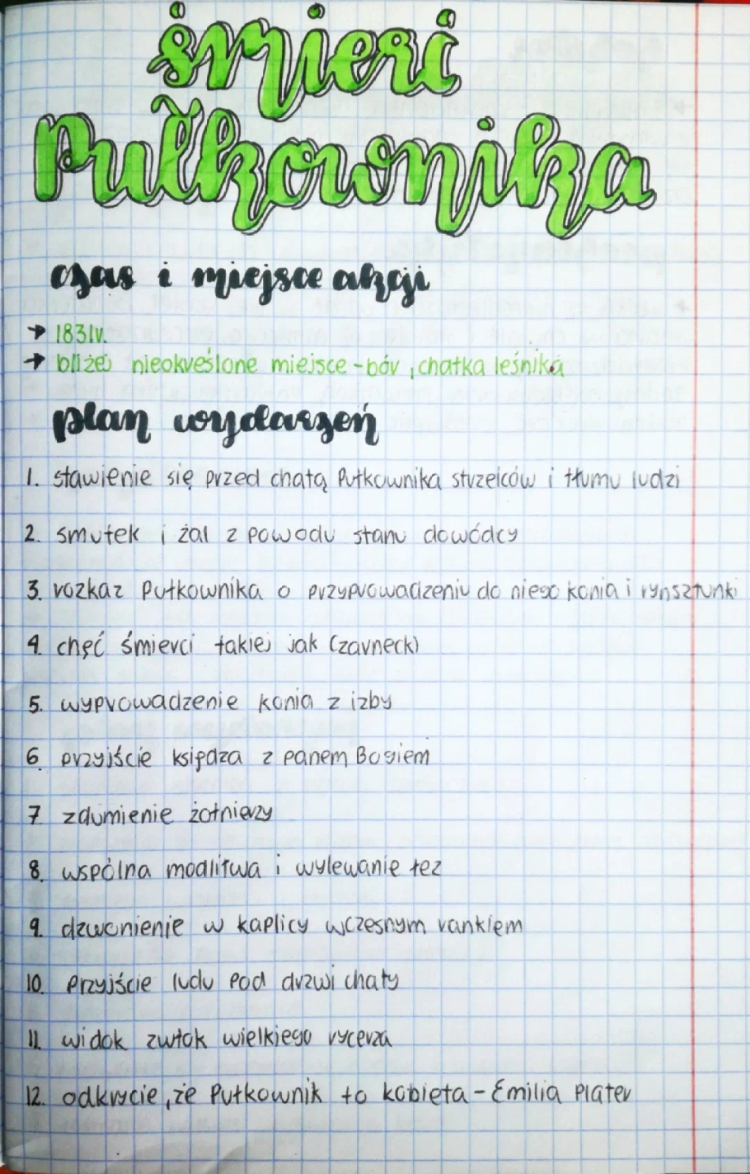 śmierć
Pułkownika
czas i miejsce akcji
→ 1831r.
→ bliżej nieokreślone miejsce - bór, chatka leśnika
plan wydarzeń
1. stawienie się przed chatą Pułkownika strzelców i tłumu ludzi
2. smutek i żal z powodu stanu dowódcy
3. rozkaz Pułkownika o przyprowadzeniu do niego konia i rynsztunki
4. chęć śmierci takiej jak Czarneckj
5. wyprowadzenie konia z izby
6. przyjście księdza z panem Bogiem
7. zdumienie żołnierzy
8. wspólna modlitwa i wylewanie łez
9. dzwonienie w kaplicy wczesnym rankiem
10. Przyjście ludu pod drzwi chaty
11. widok zwłok wielkiego rycerza
12. odkrycie, że Pułkownik to kobieta - Emilia Plater